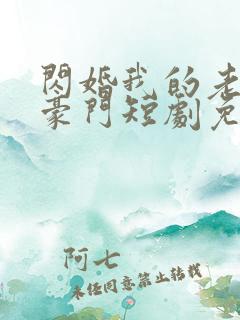 閃婚我的老
豪門短劇免
阿七
未經同意禁止轉載